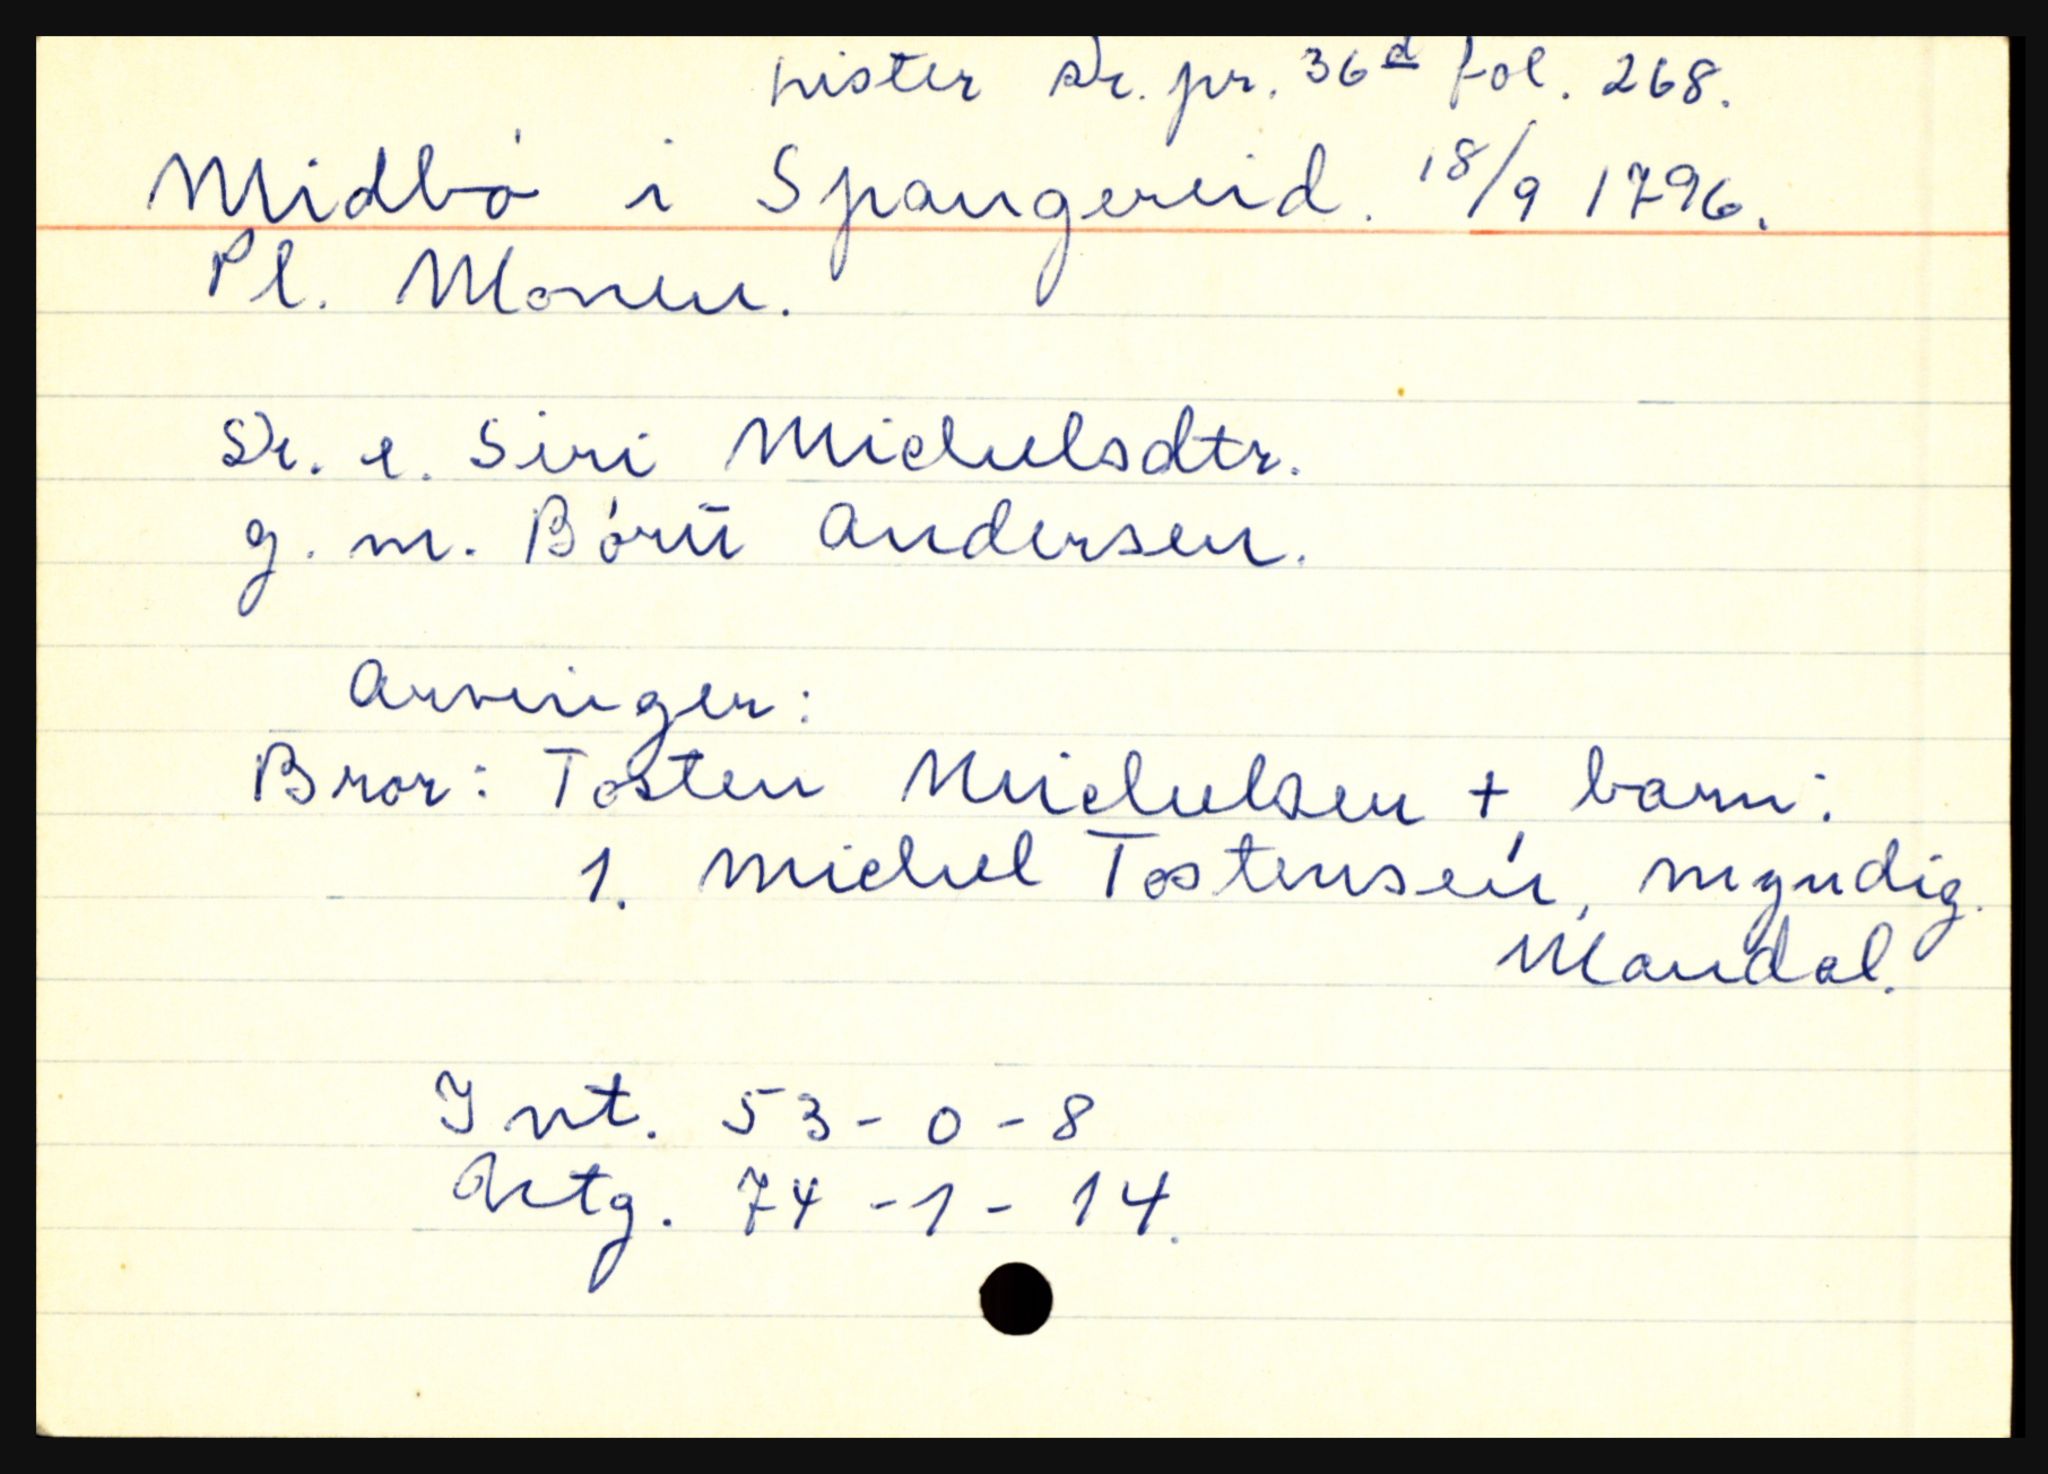 Lister Sk. pr. 36d fol. 268.
Midbø i Spangereid. 18/9 1796.
Pl. Monen.
Sk. e. Siri Michelsdtr.
g. m. Børü Andersen.
Arvinger:
Bror: Tosten Michelsen + barn:
1. Michel Tostensen, myndig.
Mandal.
Int. 53-0-8
Utg. 74-1-14.